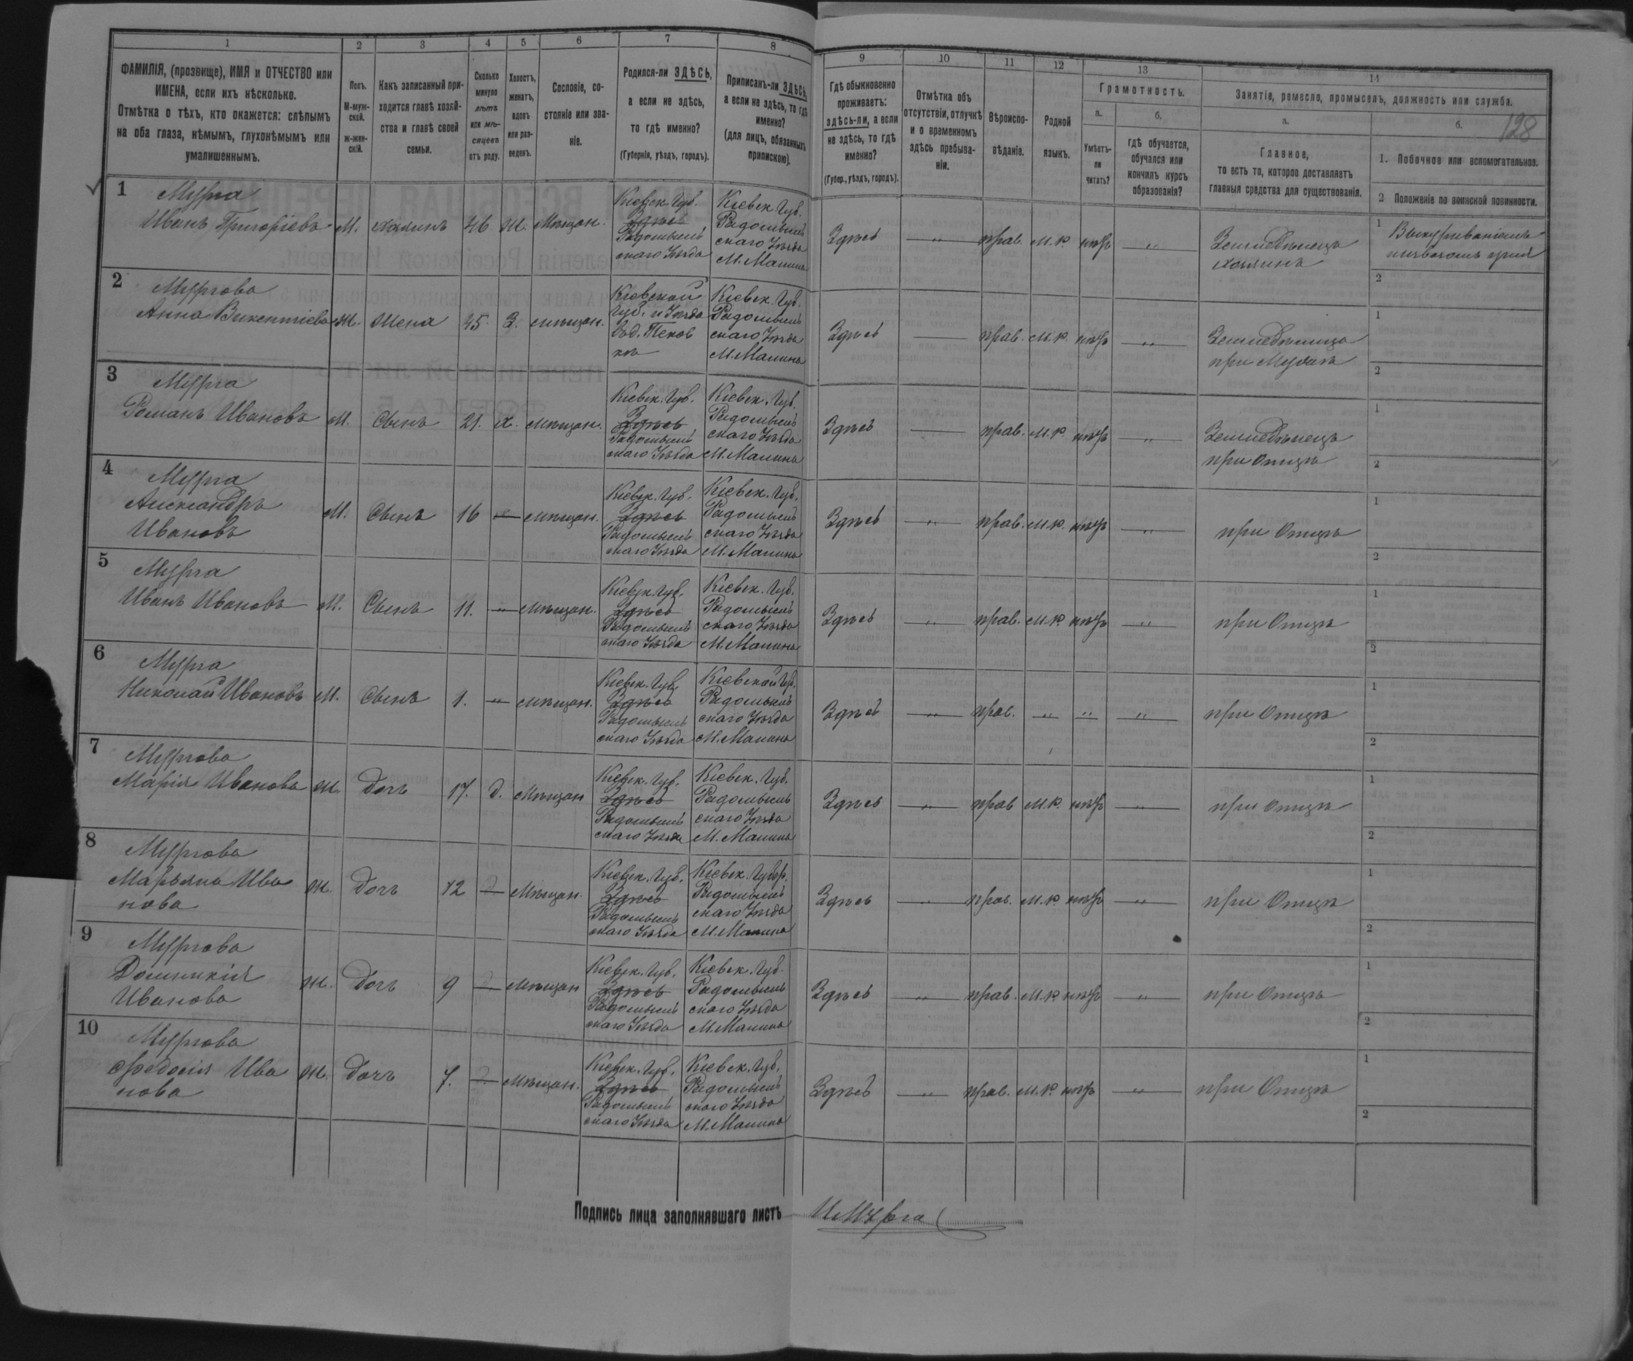 1 2 3 4 5 6 7 8
ФАМИЛІЯ, (прозвище), ИМЯ и ОТЧЕСТВО или
ИМЕНА, если ихъ нѣсколько.
Отмѣтка о тѣхъ, кто окажется: слѣпымъ
на оба глаза, нѣмымъ, глухонѣмымъ или
умалишеннымъ.
Полъ.
М-муж-
ской.
Ж-жен-
скій.
Какъ записанный при-
ходится главѣ хозяй-
ства и главѣ своей
семьи.
Сколько
минуло
лѣтъ
или мѣ-
сяцевъ
отъ роду.
Холостъ,
женатъ,
вдовъ
или раз-
веденъ.
Сословіе, со-
стояніе или зва-
ніе.
Родился-ли ЗДѢСЬ,
а если не здѣсь,
то гдѣ именно?
(Губернія, уѣздъ, городъ).
Приписанъ-ли ЗДѢСЬ,
а если не здѣсь, то гдѣ
именно?
(для лицъ, обязанныхъ
припискою).
9 10 11 12 13 14
Гдѣ обыкновенно
проживаетъ:
здѣсь-ли, а если
не здѣсь, то гдѣ
именно?
(Губер., уѣздъ, городъ).
Отмѣтка объ
отсутствіи, отлучкѣ
и о временномъ
здѣсь пребыва-
ніи.
Вѣроиспо-
вѣданіе.
Родной
языкъ.
Грамотность.
а.
Умѣетъ-
ли
читать?
б.
гдѣ обучается,
обучался или
кончилъ курсъ
образованія?
Занятія, ремесло, промыселъ, должность или служба.
а.
Главное,
то есть то, которое доставляетъ
главныя средства для существованія.
б.
128
1. Побочное или вспомогательное.
2 Положеніе по воинской повинности.
1 Мурга
Иванъ Григоріевъ М. хозяинъ 46 Ж. Мѣщан.
Кіевск. Губ.
Здѣсь
Радомысль
скаго Уѣзда
Кіевск. Губ.
Радомысль
скаго Уѣзда
М. Малинъ
Здѣсь " прав. м.р нѣтъ "
Земледѣлецъ
хозяинъ
1
2
2 Мургова
Анна Викентіева Ж. Жена 45. З. мѣщан.
Кіевской
Губ. и Уѣзда
Кіевск. Губ.
Радомысль
скаго Уѣзда
М. Малинъ
Здѣсь прав. м.р нѣтъ "
Земледѣлица
при Мужѣ
1
2
3 Мурга
Романъ Ивановъ М. Сынъ 21. Х. мѣщан.
Кіевск. Губ.
Здѣсь
Радомысль
скаго Уѣзда
Кіевск. Губ.
Радомысль
скаго Уѣзда
М. Малинъ
Здѣсь прав. м.р нѣтъ "
Земледѣлецъ
при Отцѣ
1
2
4 Мурга
Александръ
Ивановъ
М. Сынъ 16 мѣщан.
Кіевск. Губ.
Здѣсь
Радомысль
скаго Уѣзда
Кіевск. Губ.
Радомысль
скаго Уѣзда
М. Малинъ
Здѣсь " прав. м.р нѣтъ " при Отцѣ
1
2
5 Мурга
Иванъ Ивановъ М. Сынъ 11. " мѣщан.
Кіевск. Губ.
Здѣсь
Радомысль
скаго Уѣзда
Кіевск. Губ.
Радомысль
скаго Уѣзда
М. Малинъ
Здѣсь " прав. м.р нѣтъ " при Отцѣ
1
2
6 Мурга
Николай Ивановъ М. Сынъ 1. " мѣщан.
Кіевск. Губ.
Здѣсь
Радомысль
скаго Уѣзда
Кіевской Губ.
Радомысль
скаго Уѣзда
М. Малинъ
Здѣсь " прав. " " " при Отцѣ
1
2
7 Мургова
Марія Иванова Ж. Дочь 17. д. Мѣщан
Кіевск. Губ.
Здѣсь
Радомысль
скаго Уѣзда
Кіевск. Губ.
Радомысль
скаго Уѣзда
М. Малинъ
Здѣсь " прав м.р нѣтъ " при Отцѣ
1
2
8 Мургова
Марьяна Ива
нова
Ж. Дочь 12 Мѣщан.
Кіевск. Губ.
Здѣсь
Радомысль
скаго Уѣзда
Кіевск. Губер.
Радомысль
скаго Уѣзда
М. Малинъ
Здѣсь " прав. м.р нѣтъ " при Отцѣ
1
2
9 Мургова
Домникія
Иванова
Ж. Дочь 9 Мѣщан
Кіевск. Губ.
Здѣсь
Радомысль
скаго Уѣзда
Кіевск. Губ.
Радомысль
скаго Уѣзда
М. Малинъ
Здѣсь " прав. м.р нѣтъ " при Отцѣ
1
2
10 Мургова
Ѳедосія Ива
нова
Ж. Дочь 7. Мѣщан.
Кіевск. Губ.
Здѣсь
Радомысль
скаго Уѣзда
Кіевск. Губ.
Радомысль
скаго Уѣзда
М. Малинъ
Здѣсь " прав. м.р нѣтъ " при Отцѣ
1
2
Подпись лица заполнявшаго листъ И Мурга